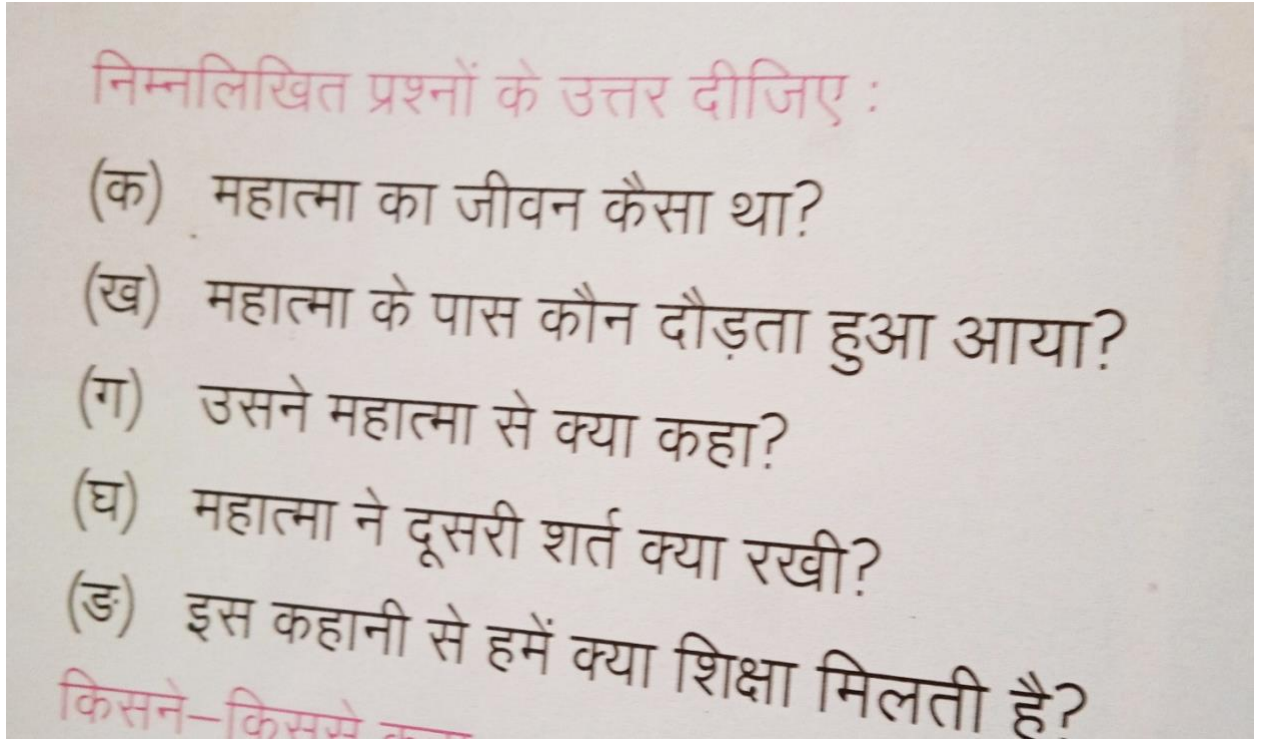 निम्नलिखित प्रश्नों के उत्तर दीजिए :
(क) महात्मा का जीवन कैसा था?
(ख) महात्मा के पास कौन दौड़ता हुआ आया?
(ग) उसने महात्मा से क्या कहा?
(घ) महात्मा ने दूसरी शर्त क्या रखी?
(ङ) इस कहानी से हमें क्या शिक्षा मिलती है?
किसने–किससे